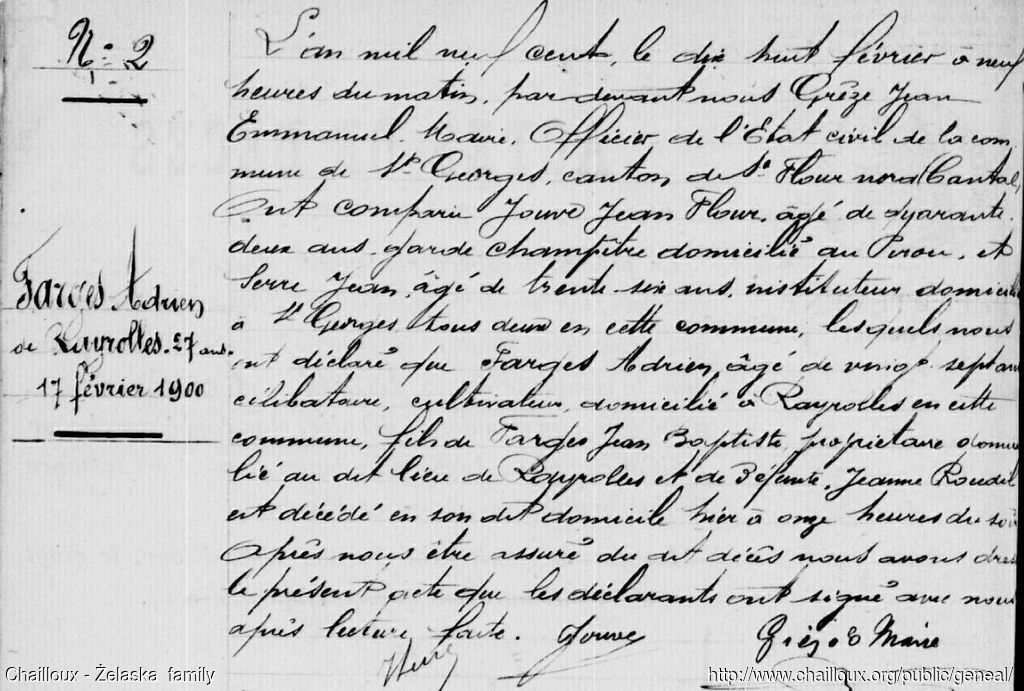 N° 2
Farges Adrien
de Rayrolles. 27 ans.
17 février 1900
L'an mil neuf cent, le dix huit février à neuf
heures du matin, par devant nous Grèze Jean
Emmanuel. Maire. Officier de l'Etat civil de la com
mune de St Georges, canton de St Flour nord (Cantal)
Ont comparu Jouve Jean Flour, âgé de quarante
deux ans. garde champêtre domicilié au Pirou, et
Serre Jean, âgé de trente six ans, instituteur domicilié
à St Georges tous deux en cette commune, lesquels nous
ont déclaré que Farges Adrien, âgé de vingt sept ans
célibataire, cultivateur, domicilié à Rayrolles en cette
commune, fils de Farges Jean Baptiste, propriétaire domici
lié au dit lieu de Rayrolles et de Défunte, Jeanne Roudil
est décédé en son dit domicile hier à onze heures du soir
Après nous être assuré du dit décès nous avons dressé
le présent acte que les déclarants ont signé avec nous
après lecture faite. Jouve
Serre
Grèze Maire
Chailloux - Żelaska family
http://www.chailloux.org/public/geneal/